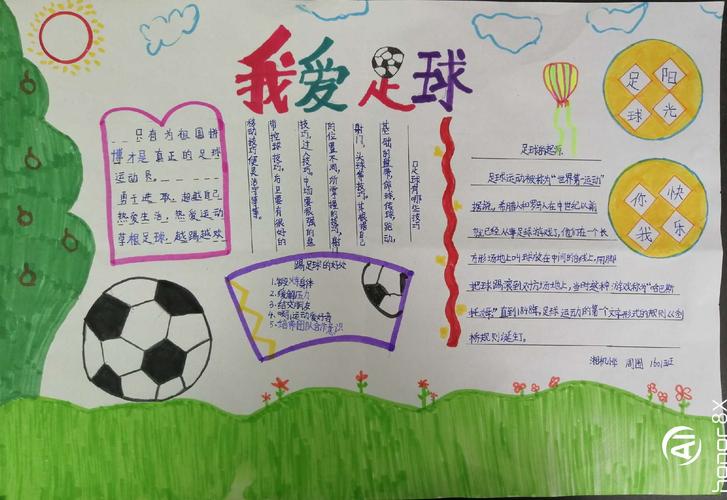 我爱足球
只有为祖国拼
搏才是真正的足球
运动员。
勇于进取,超越自己
热爱生活,热爱运动
草根足球,越踢越欢
足球有哪些技巧
基础的盘带,停球,传球,跑动,
射门,头球等技巧,其根据自己
的位置不同,所掌握的技巧,
技巧,过人技巧,中场要很强的盘
带控球技巧,后卫要有很好的
踢足球的好处
1.锻炼身体
2.缓解压力
3.结交朋友
4.
5.培养团队合作意识
足球的起源
足球运动被称为“世界第一运动”
据说,希腊人和罗马人在中世纪以前
就已经从事足球游戏了,他们在一个长
方形场地上叫球放在中间的白线上,用脚
把球踢滚到对方场地上,当时这种游戏称为“哈巴斯
托姆”直到19世纪,足球运动的第一个文字形式的规则以剑
桥规则诞生了。
1601班
足阳
球光
你快
我乐
AI
honor 8X